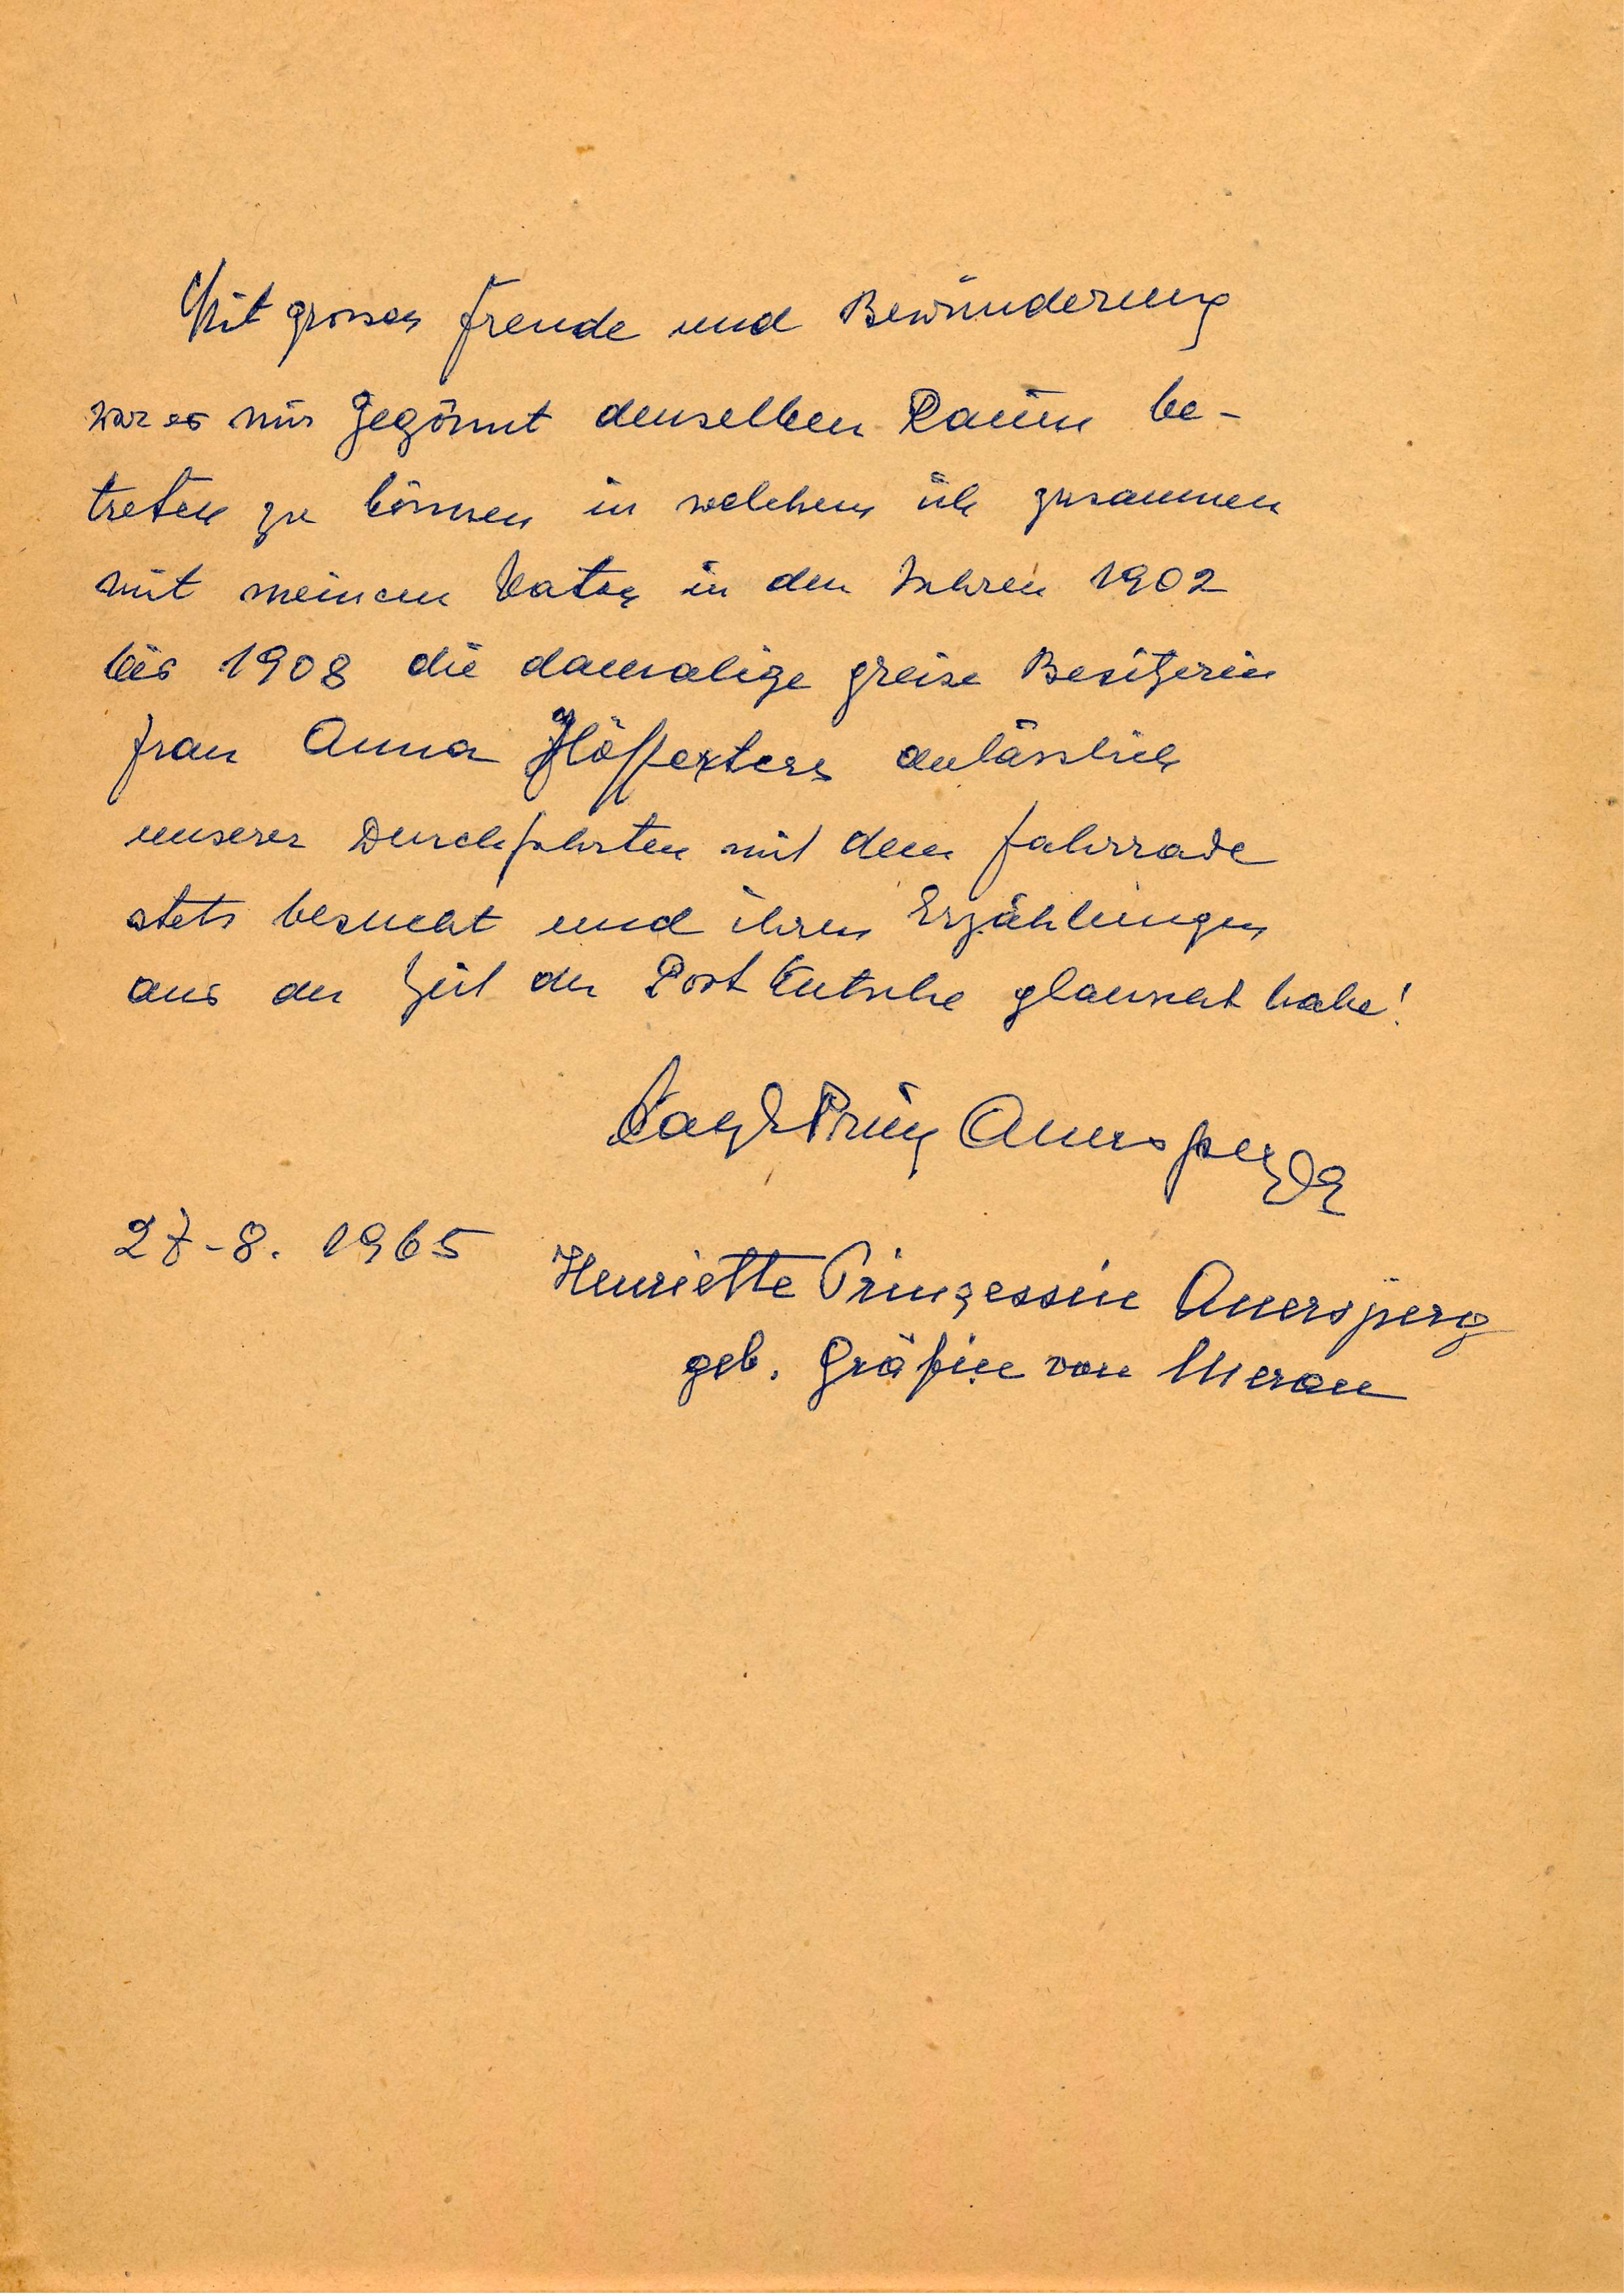 Mit grosser Freude und Bewunderung
war es mir gegönnt denselben Raum be-
treten zu können in welchem ich zusammen
mit meinem Vater in den Jahren 1902
bis 1908 die damalige greise Besitzerin
Frau Anna
anlässlich
unserer Durchfahrten mit dem Fahrrade
stets besucht und ihren Erzählungen
aus der Zeit der Post Kutsche glauscht habe!
Prinz Auersperg
27-8. 1965
Henriette Prinzessin Auersperg
geb. Gräfin von Meran